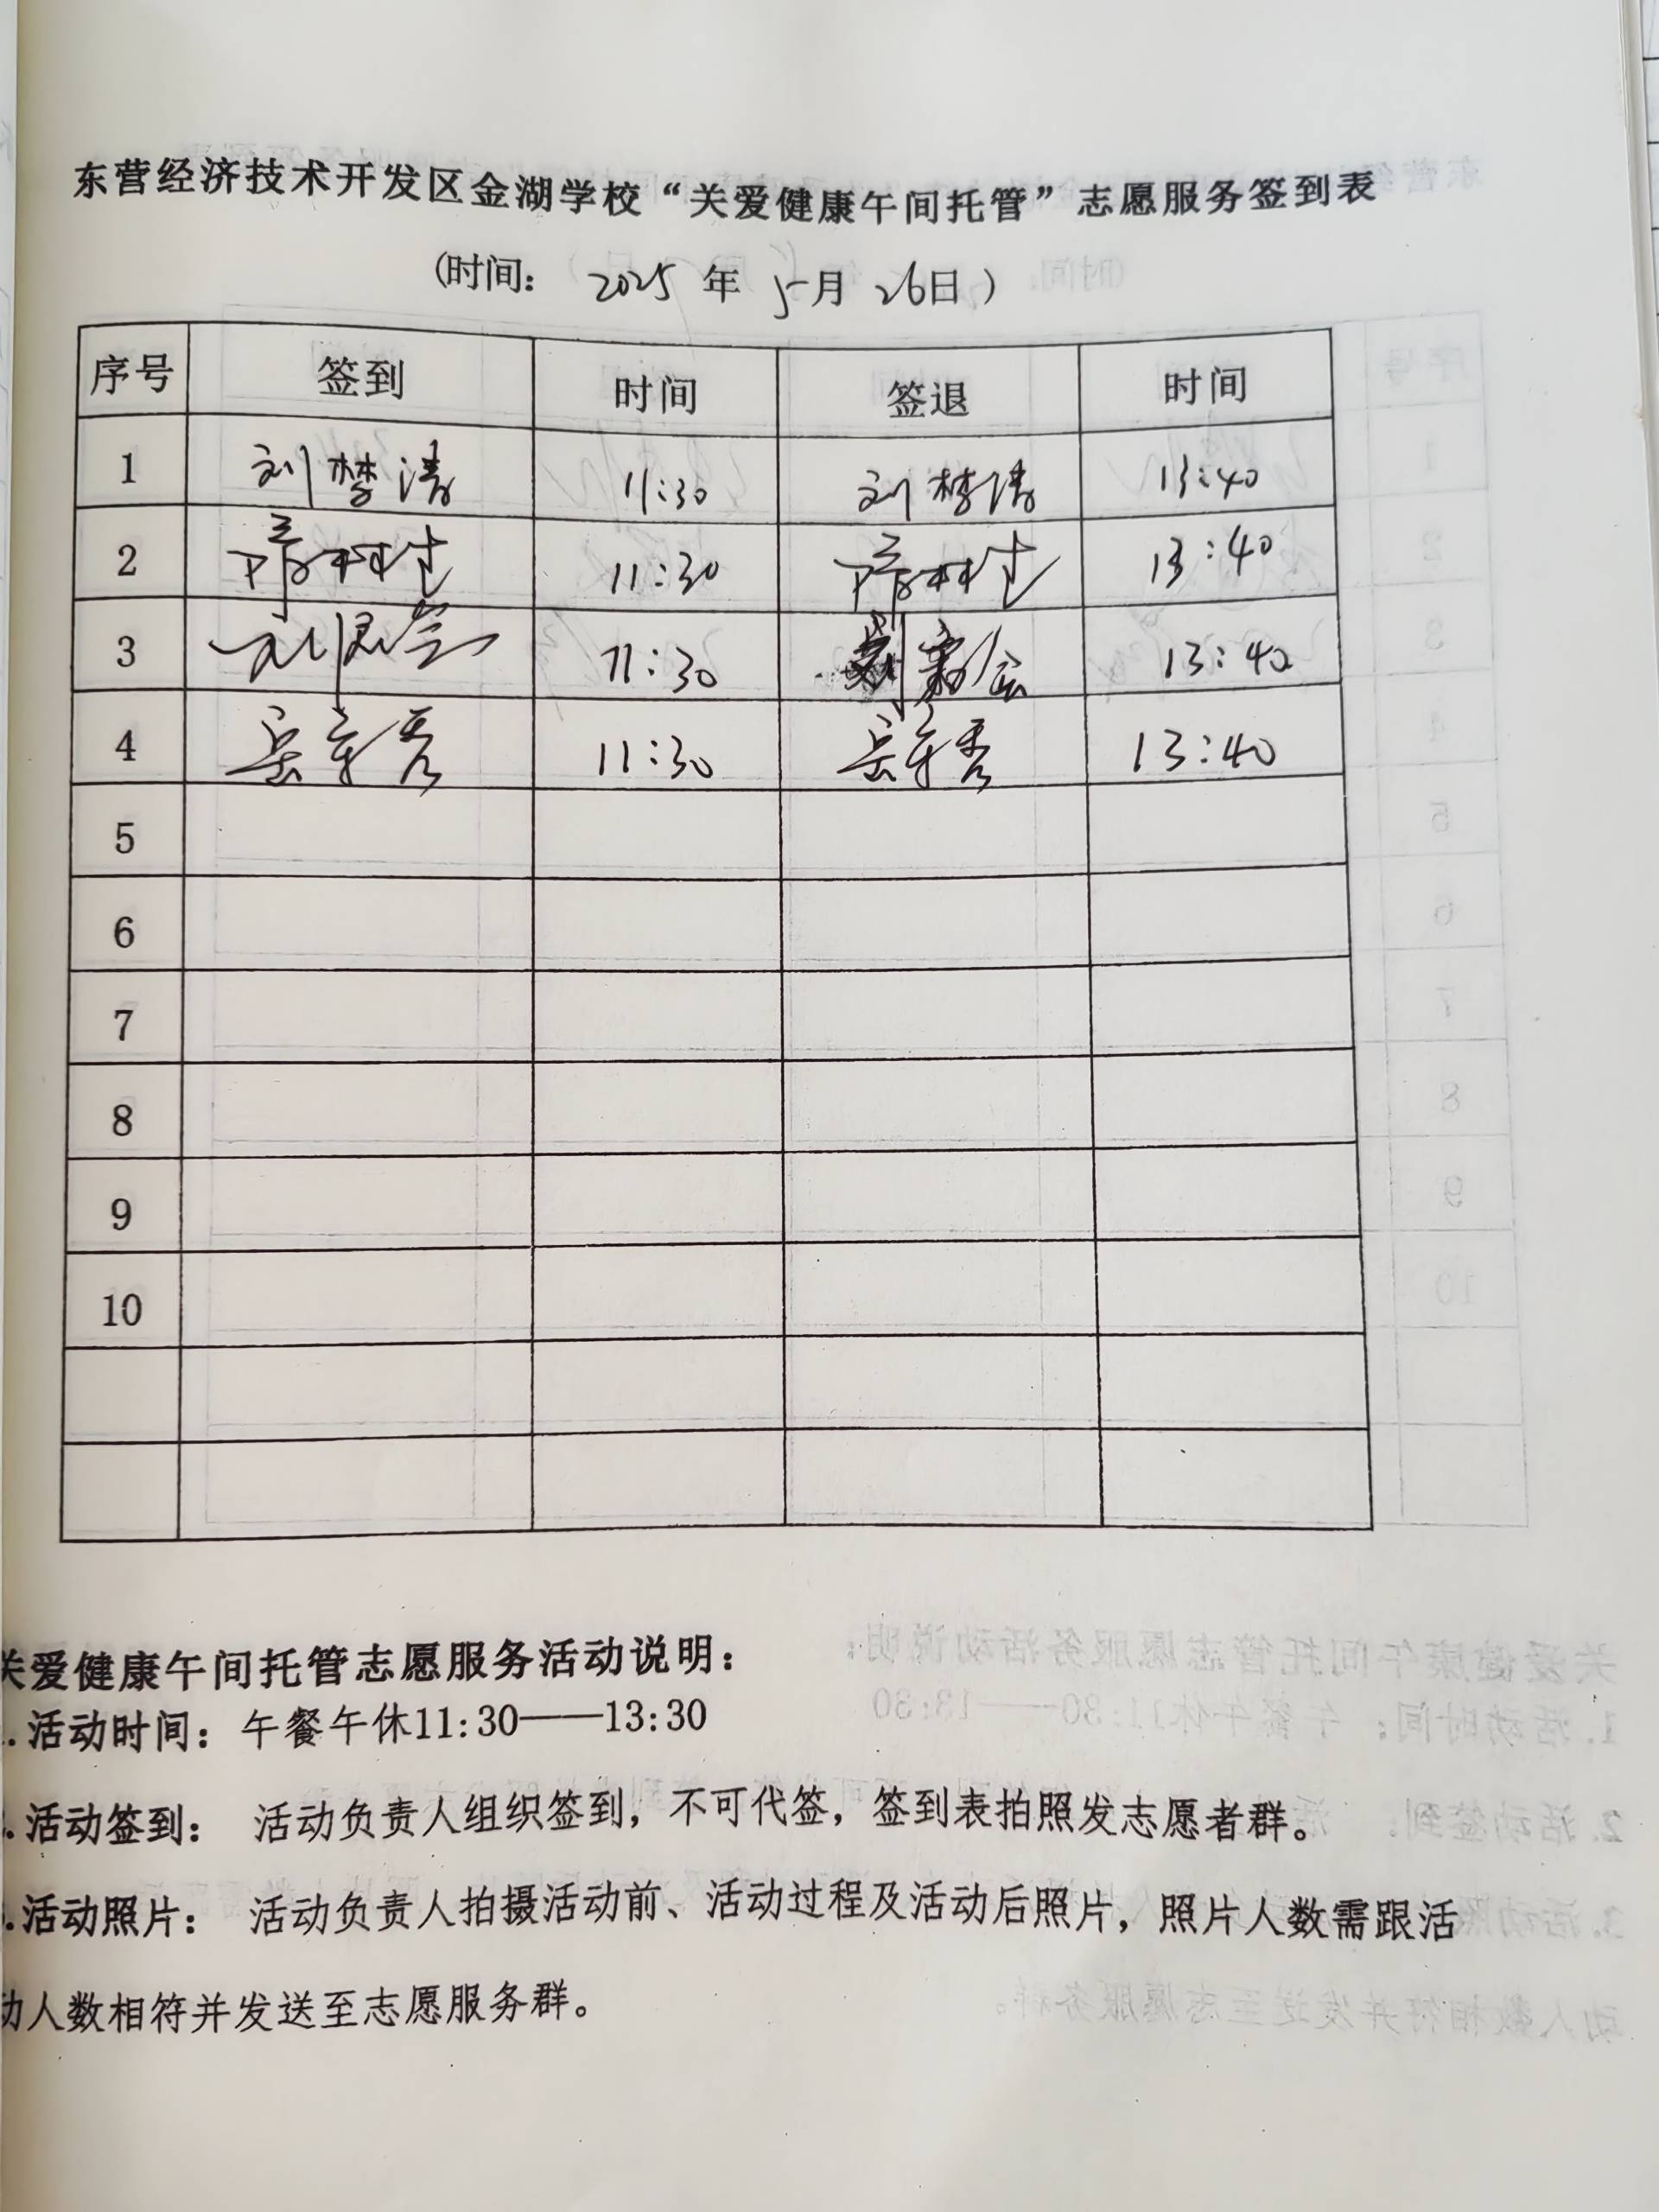 东营经济技术开发区金湖学校“关爱健康午间托管”志愿服务签到表
(时间: 2025 年 5月 26日)
序号 签到 时间 签退 时间
1 刘梦涛 11:30 刘梦涛 13:40
2 11:30 13:40
3 刘 11:30 刘 13:40
4 11:30 13:40
5
6
7
8
9
10
关爱健康午间托管志愿服务活动说明:
.活动时间: 午餐午休11:30——13:30
.活动签到: 活动负责人组织签到,不可代签,签到表拍照发志愿者群。
.活动照片: 活动负责人拍摄活动前、活动过程及活动后照片,照片人数需跟活
动人数相符并发送至志愿服务群。